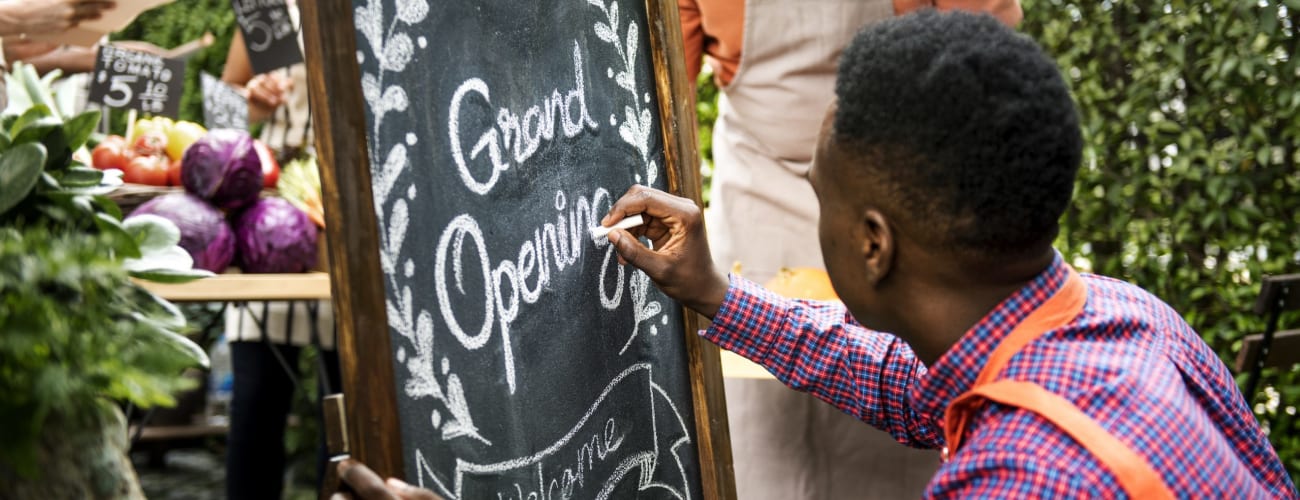 TOMATO
5
Grand
Opening
Welcome